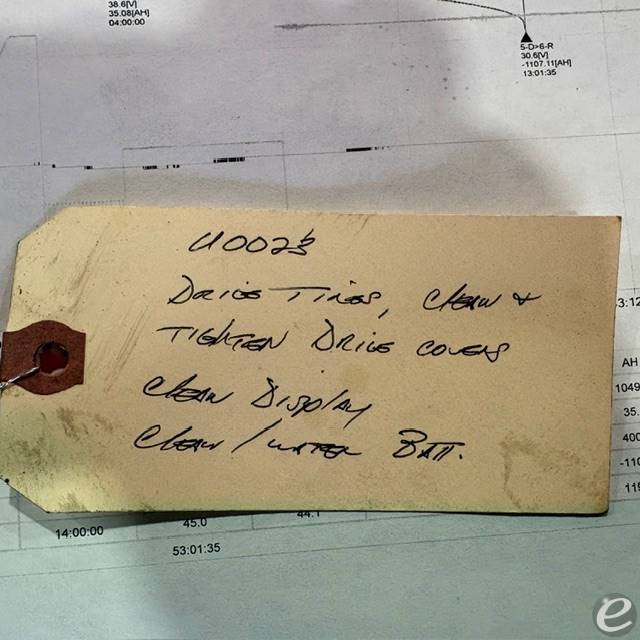 38.6[V]
35.08[AH]
04:00:00
5-D>6-R
30.6[V]
-1107.11[AH]
13:01:35
Drive Tires, Clean +
Tighten Drive covers
Clean Display
Clean / water Batt.
3:12
AH
1049
35.
400
-110
119
14:00:00 45.0 44.1
53:01:35
e